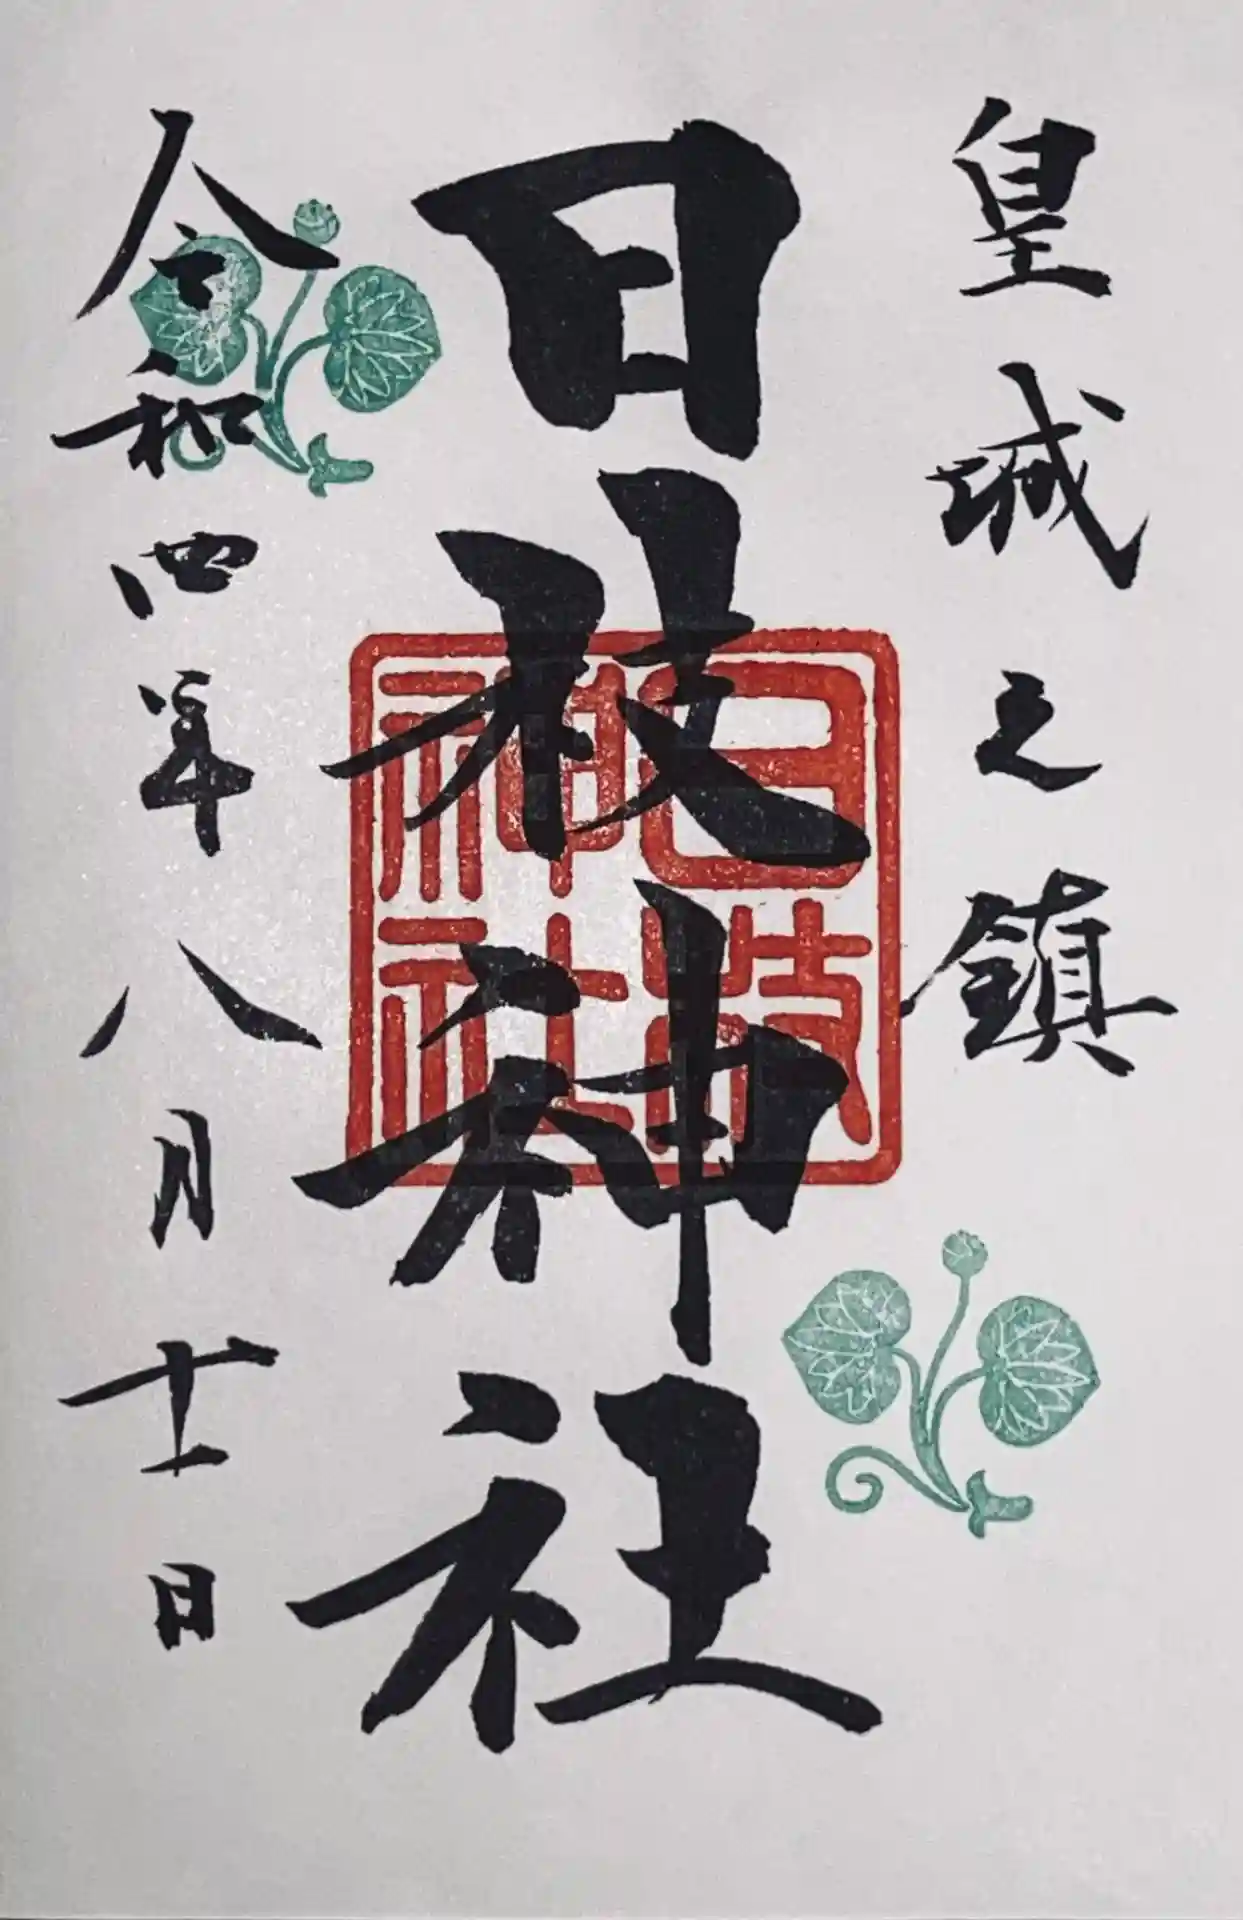 皇城之鎮
日枝神社
日枝
神社
令和四年八月十一日